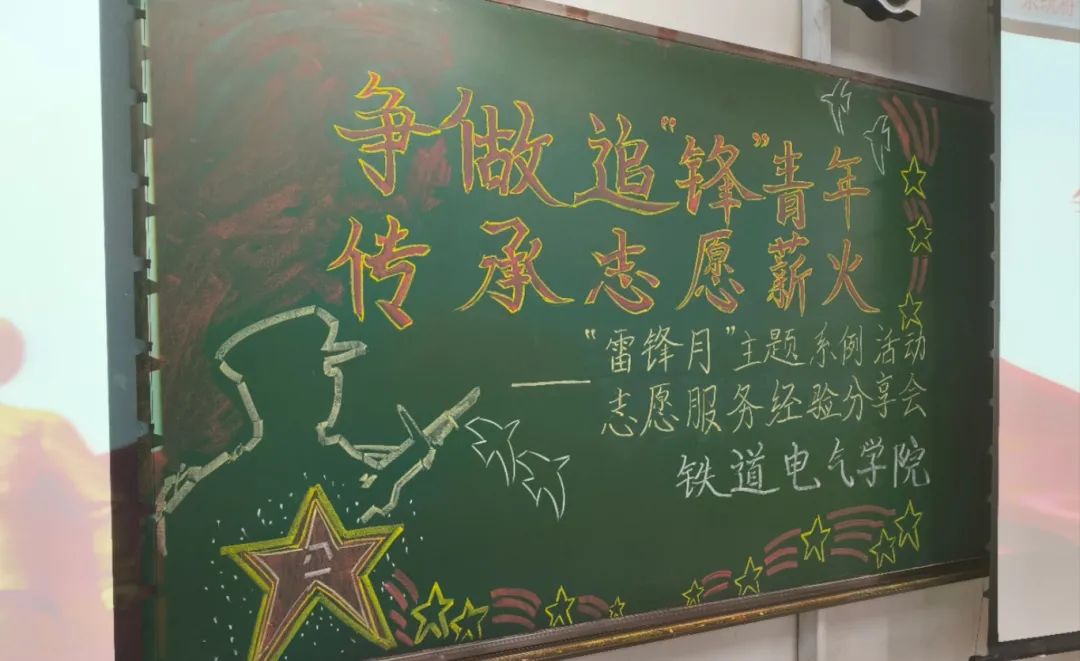 争做追“锋”青年
传承志愿薪火
——“雷锋月”主题系例活动
志愿服务经验分享会
铁道电气学院
八一